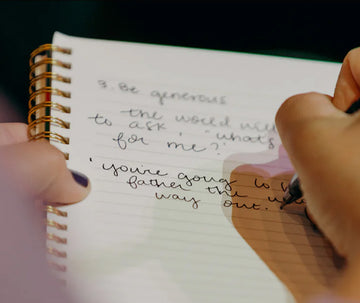 3. Be generous
the world will
to ask, 'what's
for me?'
'you're going to
father the
way out.